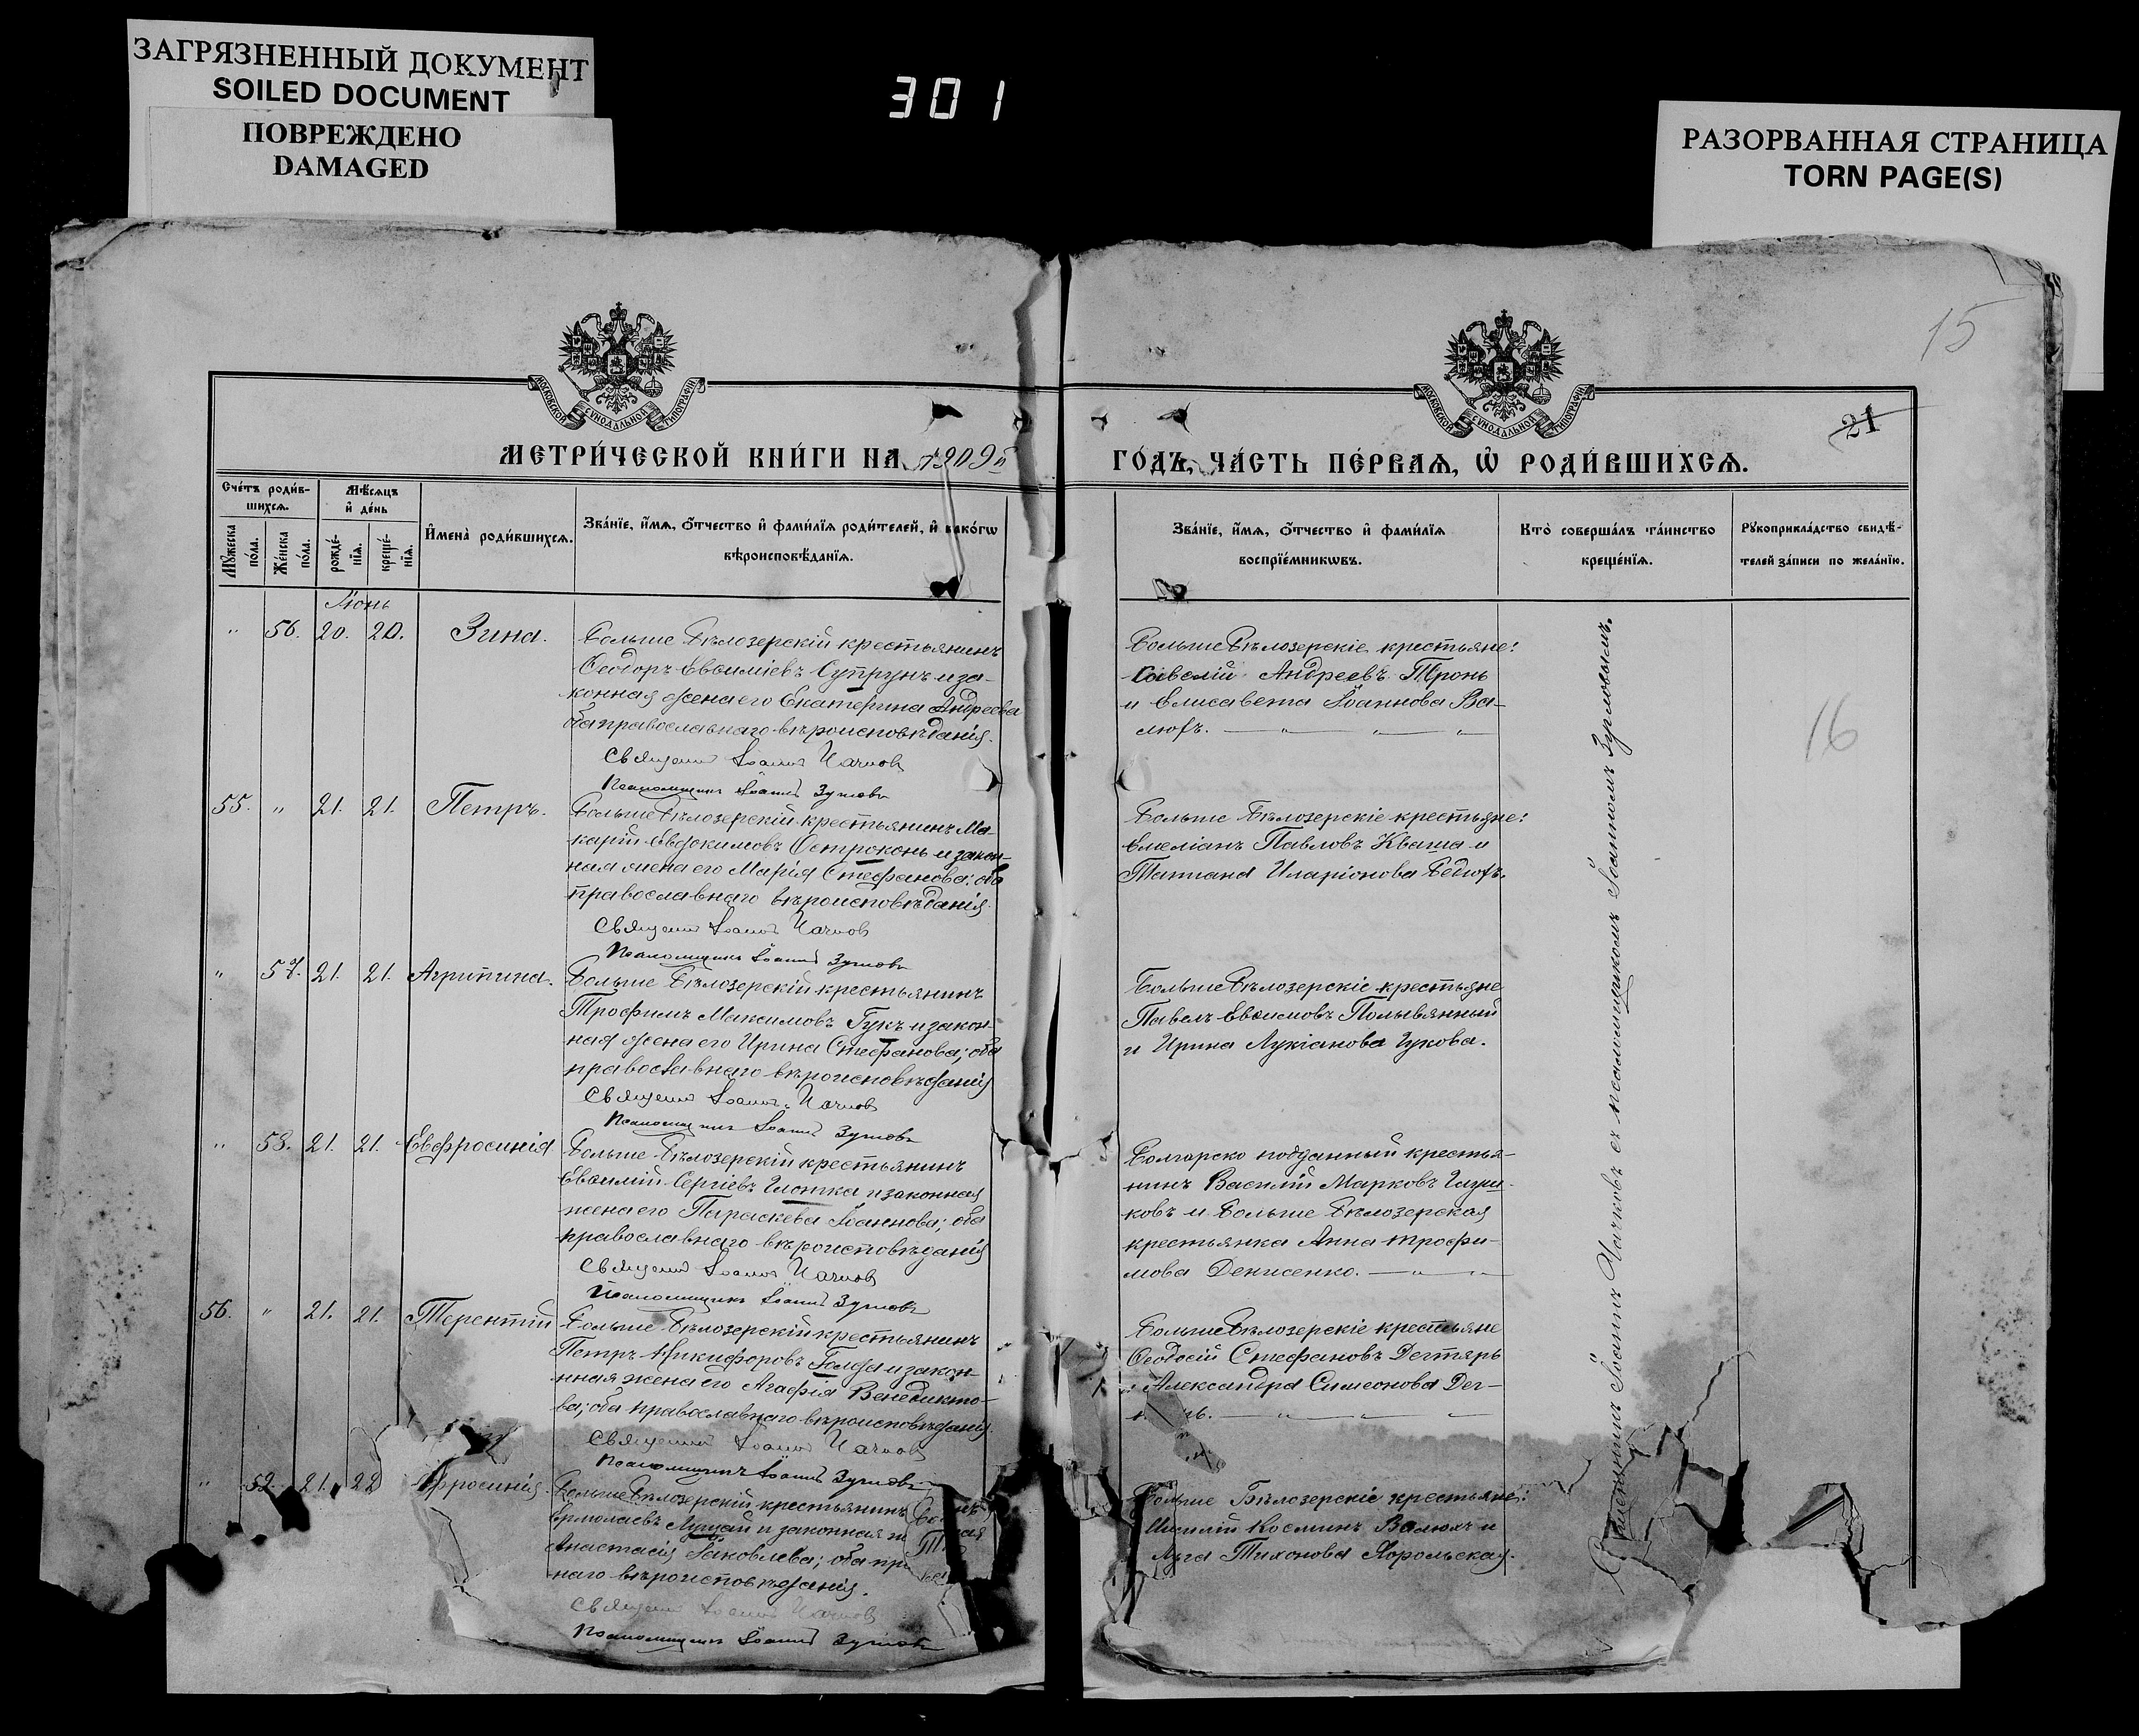 ЗАГРЯЗНЕННЫЙ ДОКУМЕНТ
SOILED DOCUMENT
ПОВРЕЖДЕНО
DAMAGED
301
РАЗОРВАННАЯ СТРАНИЦА
TORN PAGE(S)
15
21
МОСКОВСКОЙ СУНОДАЛЬНОЙ ТИПОГРАФІИ
МОСКОВСКОЙ СУНОДАЛЬНОЙ ТИПОГРАФІИ
МЕТРИ́ЧЕСКОЙ КНИ́ГИ НА 1909й
ГО́ДЪ, ЧА́СТЬ ПЕ́РВАЯ, Ѡ҆ РОДИ́ВШИХСЯ.
Сче́тъ роди́в-
шихся.
Мꙋ́жеска по́ла.
Же́нска по́ла.
Мѣ́сяцъ
и҆ де́нь
рожде́-
нїя.
креще́-
нїя.
И҆мена̀ роди́вшихся.
Зва́нїе, и҆́мя, ѻ҆́тчество и҆ фами́лїя роди́телей, и҆ како́гѡ
вѣроисповѣ́данїя.
Зва́нїе, и҆́мя, ѻ҆́тчество и҆ фами́лїя
воспрїе́мникѡвъ.
Кто̀ соверша́лъ та́инство
креще́нїя.
Рꙋкоприкла́дство свидѣ́-
телей за́писи по жела́нїю.
Іюнь
" 56. 20. 20. Зина.
Больше Бѣлозерскій крестьянинъ
Ѳеодоръ Евѳиміевъ Супрунъ и за-
конная жена его Екатерина Андреева
оба православнаго вѣроисповѣданія.
Священникъ Іоаннъ
Псаломщикъ Іоаннъ
Больше Бѣлозерскіе крестьяне:
Савелій Андреевъ Тронь
и Елисавета Іоаннова Ва-
люхъ. — " — " — "
16
55. " 21. 21. Петръ.
Больше Бѣлозерскій крестьянинъ Ма-
карій Евдокимовъ Остроконь и закон-
ная жена его Марія Стефанова; оба
православнаго вѣроисповѣданія.
Священникъ Іоаннъ
Псаломщикъ Іоаннъ
Больше Бѣлозерскіе крестьяне:
Емеліанъ Павловъ Кваша и
Татіана Иларіонова Бедюхъ.
" 57. 21. 21. Агрипина.
Больше Бѣлозерскій крестьянинъ
Трофимъ Максимовъ Гукъ и закон-
ная жена его Ирина Стефанова; оба
православнаго вѣроисповѣданія
Священникъ Іоаннъ
Псаломщикъ Іоаннъ
Больше Бѣлозерскіе крестьяне
Павелъ Евѳимовъ Полывянный
и Ирина Лукіанова Гукова.
" 58. 21. 21. Евфросинія
Больше Бѣлозерскій крестьянинъ
Евѳимій Сергіевъ и законная
жена его Параскева Іоаннова; оба
православнаго вѣроисповѣданія
Священникъ Іоаннъ
Псаломщикъ Іоаннъ
Болгарско подданный крестья-
нинъ Василій Марковъ
ковъ и Больше Бѣлозерская
крестьянка Анна Трофи-
мова Денисенко. — " — "
56. " 21. 21. Терентій
Больше Бѣлозерскій крестьянинъ
Петръ Никифоровъ и закон-
нная жена его Агафія Венедикто-
ва; оба православнаго вѣроисповѣданія.
Священникъ Іоаннъ
Псаломщикъ Іоаннъ
Больше Бѣлозерскіе крестьяне
Ѳеодосій Стефановъ Дегтярь
и Александра Симеонова Дег-
" 59. 21. 22 фросинія.
Больше Бѣлозерскій крестьянинъ
Ермолаевъ и законная
Анастасія Іаковлева; оба пра
наго вѣроисповѣданія.
Священникъ Іоаннъ
Псаломщикъ Іоаннъ
Больше Бѣлозерскіе крестьяне:
Косминъ Валюхъ и
Тихонова Хорольская.
Священникъ Іоаннъ съ псаломщикомъ Іоанномъ